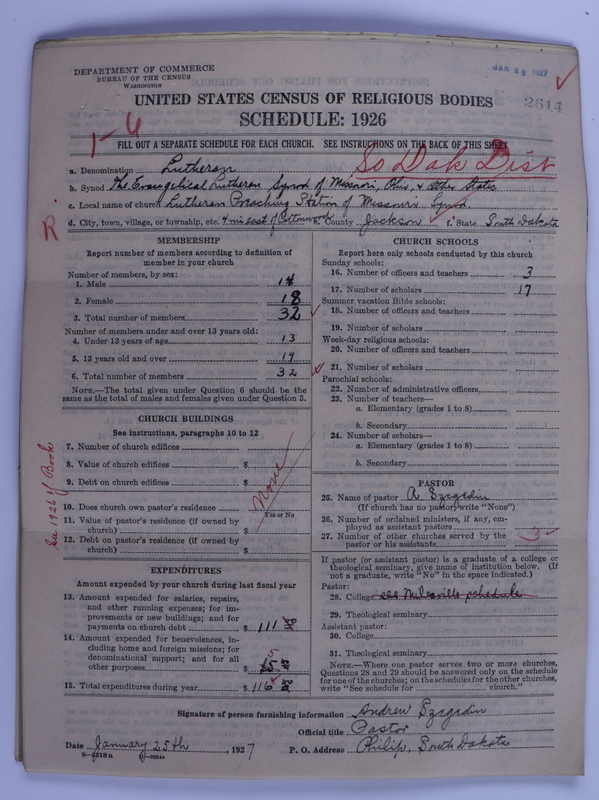 DEPARTMENT OF COMMERCE
BUREAU OF THE CENSUS
WASHINGTON
2614
UNITED STATES CENSUS OF RELIGIOUS BODIES
SCHEDULE: 1926
1-6
FILL OUT A SEPARATE SCHEDULE FOR EACH CHURCH. SEE INSTRUCTIONS ON THE BACK OF THIS SHEET
So Dak Dist
a. Denomination Lutheran
b. Synod The Evangelical Lutheran Synod of Missouri, Ohio, & other States
c. Local name of church Lutheran Preaching Station of Missouri Synod
d. City, town, village, or township, etc. 4 mi east of Cottonwood e. County Jackson f. State South Dakota
R.
MEMBERSHIP
Report number of members according to definition of
member in your church
Number of members, by sex:
1. Male 14
2. Female 18
3. Total number of members 32
Number of members under and over 13 years old:
4. Under 13 years of age 13
5. 13 years old and over 19
6. Total number of members 32
NOTE.—The total given under Question 6 should be the
same as the total of males and females given under Question 3.
CHURCH BUILDINGS
See instructions, paragraphs 10 to 12
7. Number of church edifices
8. Value of church edifices $
9. Debt on church edifices $
None
10. Does church own pastor's residence
Yes or No
11. Value of pastor's residence (if owned by
church) $
12. Debt on pastor's residence (if owned by
church) $
See 1926 Y Book
EXPENDITURES
Amount expended by your church during last fiscal year
13. Amount expended for salaries, repairs,
and other running expenses; for im-
provements or new buildings; and for
payments on church debt $ 111
14. Amount expended for benevolences, in-
cluding home and foreign missions; for
denominational support; and for all
other purposes $
15. Total expenditures during year $ 116
CHURCH SCHOOLS
Report here only schools conducted by this church
Sunday schools:
16. Number of officers and teachers 3
17. Number of scholars 17
Summer vacation Bible schools:
18. Number of officers and teachers
19. Number of scholars
Week-day religious schools:
20. Number of officers and teachers
21. Number of scholars
Parochial schools:
22. Number of administrative officers
23. Number of teachers—
a. Elementary (grades 1 to 8)
b. Secondary
24. Number of scholars—
a. Elementary (grades 1 to 8)
b. Secondary
PASTOR
25. Name of pastor A. Szegedin
(If church has no pastor, write "None")
26. Number of ordained ministers, if any, em-
ployed as assistant pastors
27. Number of other churches served by the
pastor or his assistants 3
If pastor (or assistant pastor) is a graduate of a college or
theological seminary, give name of institution below. (If
not a graduate, write "No" in the space indicated.)
Pastor:
28. College see Milesville schedule
29. Theological seminary
Assistant pastor:
30. College
31. Theological seminary
NOTE.—Where one pastor serves two or more churches,
Questions 28 and 29 should be answered only on the schedule
for one of the churches; on the schedules for the other churches,
write "See schedule for church."
Signature of person furnishing information Andrew Szegedin
Official title Pastor
Date January 25th, 1927 P. O. Address Philip, South Dakota